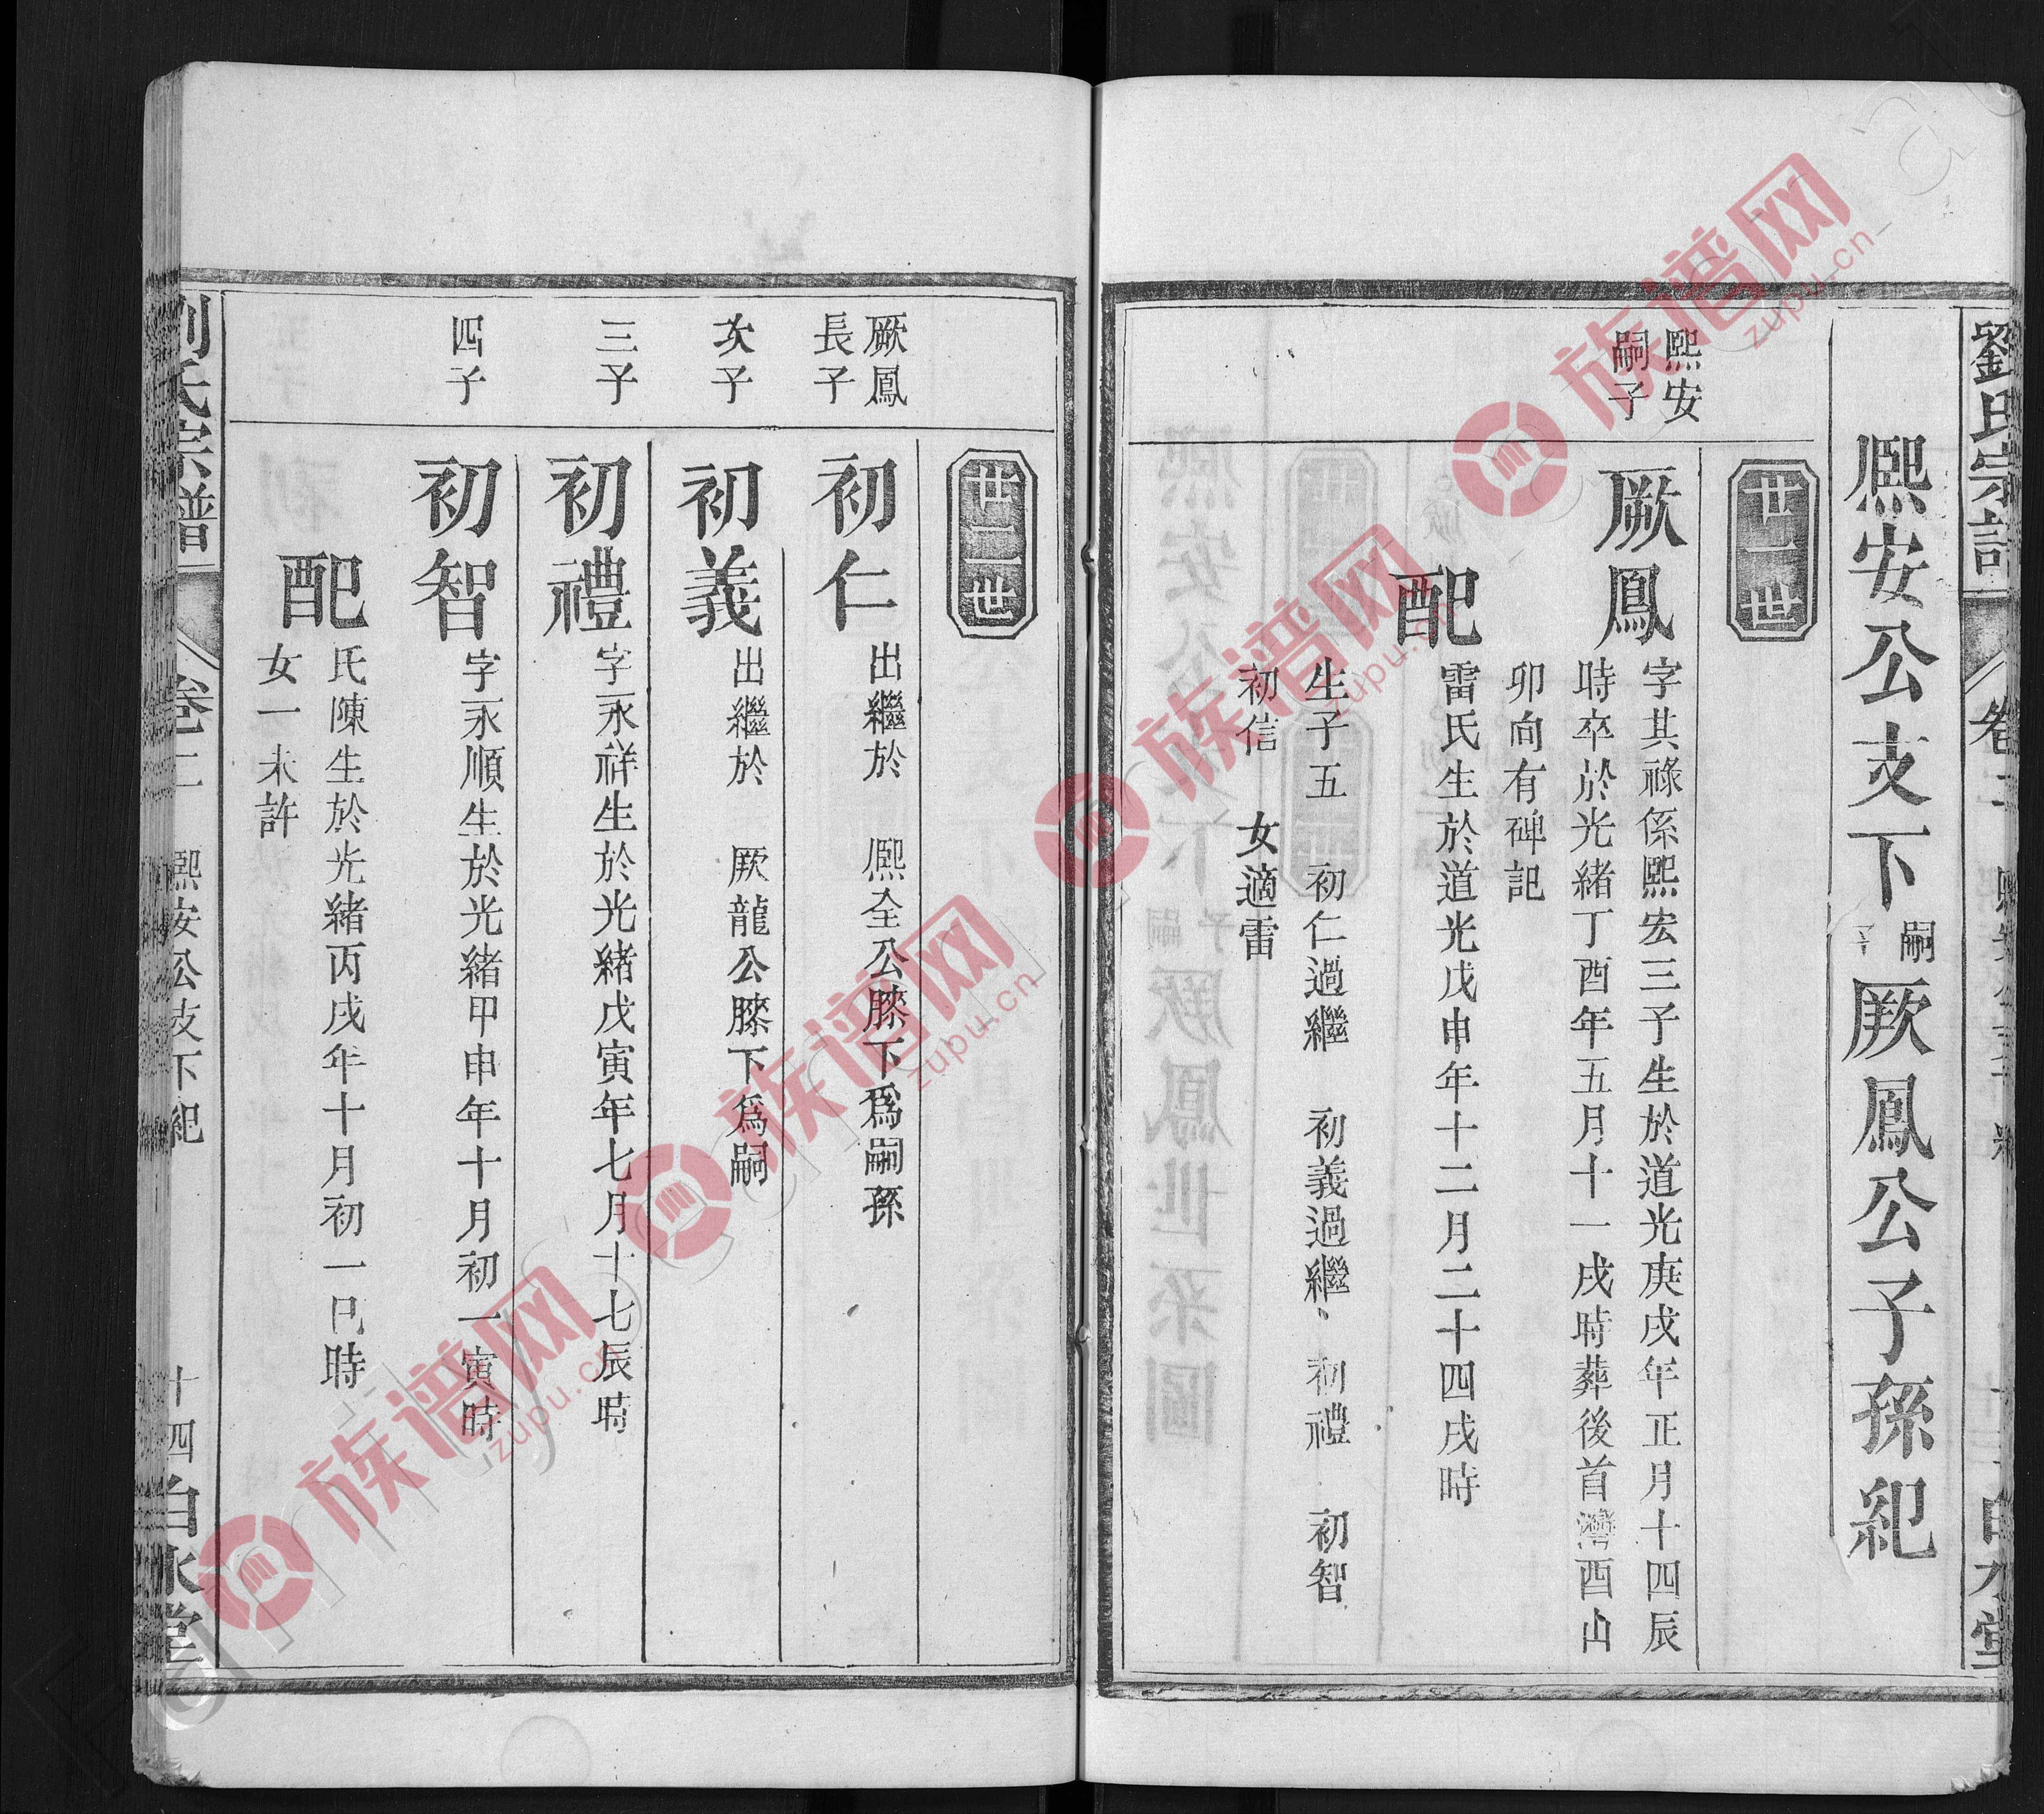 劉氏宗譜
卷二
白水堂
熙安公支下嗣子厥鳳公子孫紀
廿一世
熙安嗣子
厥鳳
字其祿係熙宏三子生於道光庚戌年正月十四辰
時卒於光緒丁酉年五月十一戌時葬後首灣酉山
卯向有碑記
配
雷氏生於道光戊申年十二月二十四戌時
生子五 初仁過繼 初義過繼 初禮 初智
初信 女適雷
廿二世
厥鳳長子
初仁
出繼於 熙全公膝下爲嗣孫
次子
初義
出繼於 厥龍公膝下爲嗣
三子
初禮
字永祥生於光緒戊寅年七月十七辰時
四子
初智
字永順生於光緒甲申年十月初一寅時
配
氏陳生於光緒丙戌年十月初一巳時
女一未許
劉氏宗譜
卷二
熙安公支下紀
十四
白水堂
族谱网
zupu.cn
族谱网
zupu.cn
族谱网
zupu.cn
族谱网
zupu.cn